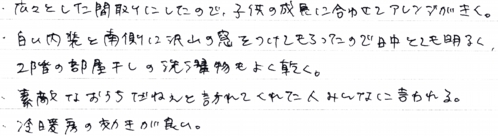 ・広々とした間取りにしたので、子供の成長に合わせてアレンジがきく。
・白い内装と南側に沢山の窓をつけてもらったので日中とても明るく、
2階の部屋干しの洗濯物もよく乾く。
・素敵なおうちだねえと訪れてくれた人みんなに言われる。
・冷暖房の効きが良い。